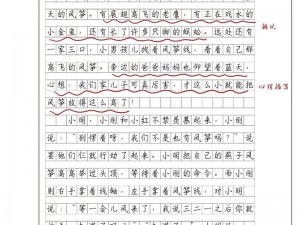 天的风筝。有展翅高飞的老鹰，有正在戏水的
小金鱼，还有长了许多只脚的蜈蚣。远处还有
一家三口，小男孩儿拽着风筝线，看着自己那
高高飞的风筝。旁边的爸爸妈妈也仰望着蓝天，
心想：我们家儿子可真厉害，才这么小就能把
风筝放得这么高了！
小明，小刚和小红可不禁羡慕起来，小明
说：“别愣着呀，我们不是也有风筝吗？”说
要他们仨就行动了起来。小明把自己的燕子风
筝高高举过头顶，等待着小刚的命令。而小刚
则右手拿着线轴，左手拿着风筝线，对小明
说：“等一会儿风来了，我说三二一之后你就
排比
心理描写